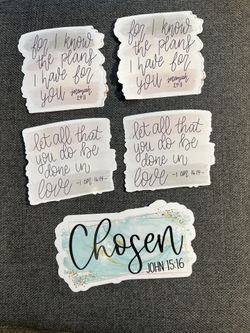 for I know
the plans
I have for
you Jeremiah
29:11
for I know
the plans
I have for
you Jeremiah
29:11
let all that
you do be
done in
love -1 COR. 16:14-
let all that
you do be
done in
love -1 COR. 16:14-
Chosen
JOHN 15:16